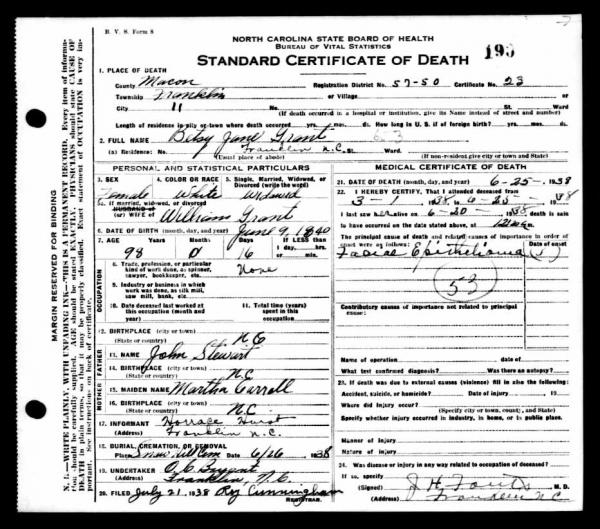 B. V. S. Form 8
NORTH CAROLINA STATE BOARD OF HEALTH
BUREAU OF VITAL STATISTICS
STANDARD CERTIFICATE OF DEATH
195
1. PLACE OF DEATH
County Macon
Registration District No. 57-50 Certificate No. 23
Township Franklin or Village
City 11 No. St. Ward
(If death occurred in a hospital or institution, give its Name instead of street and number)
Length of residence in city or town where death occurred yrs. mos. ds. How long in U. S. if of foreign birth? yrs. mos. ds.
2. FULL NAME Betsy Jane Grant
(a) Residence: Franklin N.C. St. Ward.
(Usual place of abode) (If non-resident give city or town and State)
PERSONAL AND STATISTICAL PARTICULARS
3. SEX 4. COLOR OR RACE 5. Single, Married, Widowed, or Divorced (write the word)
Female White Widowed
5a. If married, widowed, or divorced
HUSBAND of
(or) WIFE of William Grant
6. DATE OF BIRTH (month, day, and year) June 9, 1840
7. AGE Years Months Days If LESS than 1 day, hrs. or min.
98 0 16
OCCUPATION
8. Trade, profession, or particular kind of work done, as spinner, sawyer, bookkeeper, etc. None
9. Industry or business in which work was done, as silk mill, saw mill, bank, etc.
10. Date deceased last worked at this occupation (month and year)
11. Total time (years) spent in this occupation
12. BIRTHPLACE (city or town)
(State or country) N.C
FATHER
13. NAME John Stewart
14. BIRTHPLACE (city or town)
(State or country) N.C
MOTHER
15. MAIDEN NAME Martha Carroll
16. BIRTHPLACE (city or town)
(State or country) N.C.
17. INFORMANT Horrace Hurst
(Address) Franklin N.C.
18. BURIAL, CREMATION, OR REMOVAL
Place Snow Hill Cem Date 6/26 1938
19. UNDERTAKER O.C. Bryant
(Address) Franklin, N.C.
20. FILED July 21 1938 Roy Cunningham
REGISTRAR.
MEDICAL CERTIFICATE OF DEATH
21. DATE OF DEATH (month, day, and year) 6-25- 1938
22. I HEREBY CERTIFY, That I attended deceased from
3-1- 1938, to 6-25- 1938
I last saw her alive on 6-20- 1938, death is said
to have occurred on the date stated above, at 12 m.
The principal cause of death and related causes of importance in order of onset were as follows: Date of onset
Facial Epithelioma
53
Contributory causes of importance not related to principal cause:
Name of operation Date of
What test confirmed diagnosis? Was there an autopsy?
23. If death was due to external causes (violence) fill in also the following:
Accident, suicide, or homicide? Date of injury 19
Where did injury occur?
(Specify city or town, county, and State)
Specify whether injury occurred in industry, in home, or in public place.
Manner of injury
Nature of injury
24. Was disease or injury in any way related to occupation of deceased?
If so, specify
(Signed) J.H. Fouts M. D.
(Address) Franklin N.C
MARGIN RESERVED FOR BINDING
N. B.—WRITE PLAINLY, WITH UNFADING INK—THIS IS A PERMANENT RECORD. Every item of information should be carefully supplied. AGE should be stated EXACTLY. PHYSICIANS should state CAUSE OF DEATH in plain terms, so that it may be properly classified. Exact statement of OCCUPATION is very important. See instructions on back of certificate.